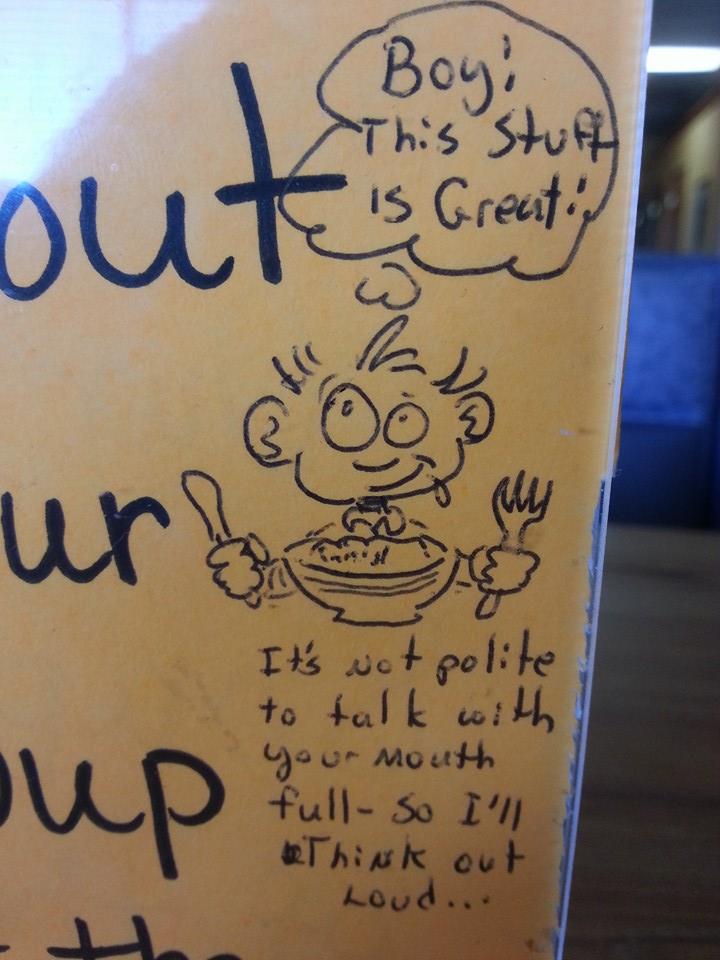 Boy!
This Stuff
is Great!
out
ur
oup
the
It's not polite
to talk with
your mouth
full- So I'll
Think out
Loud...